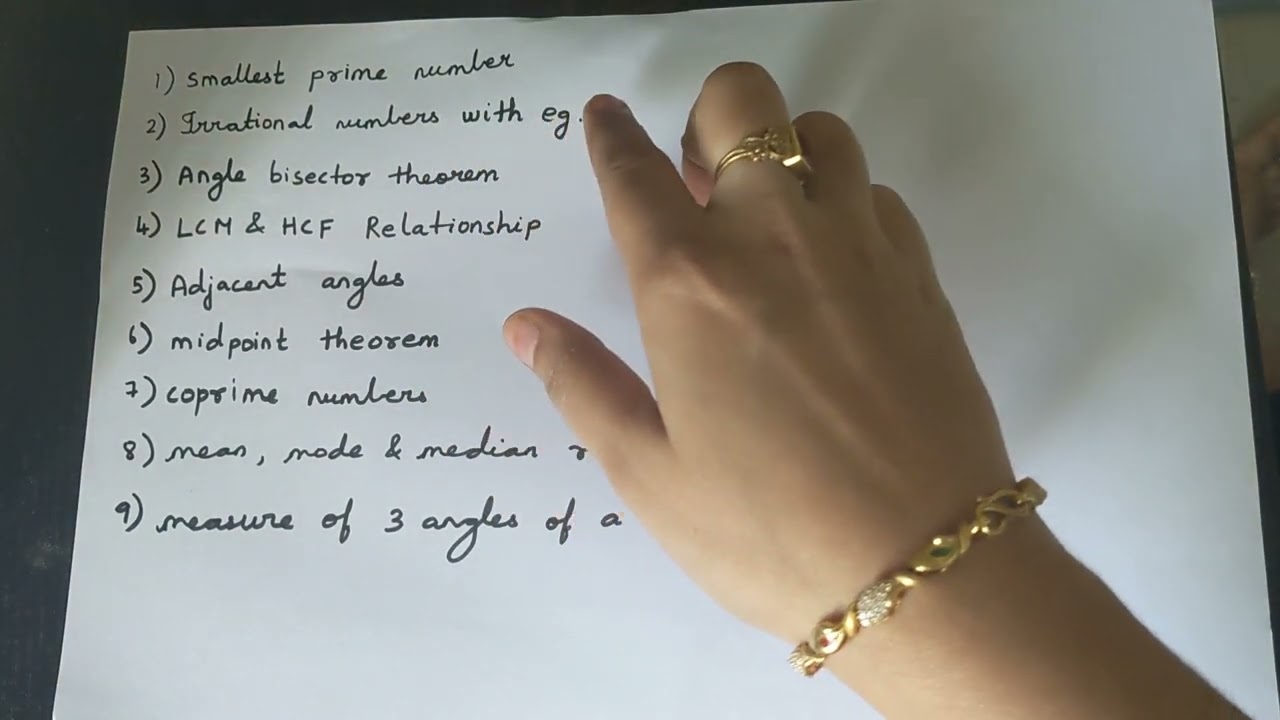 1) Smallest prime number
2) Irrational numbers with eg.
3) Angle bisector theorem
4) LCM & HCF Relationship
5) Adjacent angles
6) midpoint theorem
7) coprime numbers
8) mean, mode & median
9) measure of 3 angles of a